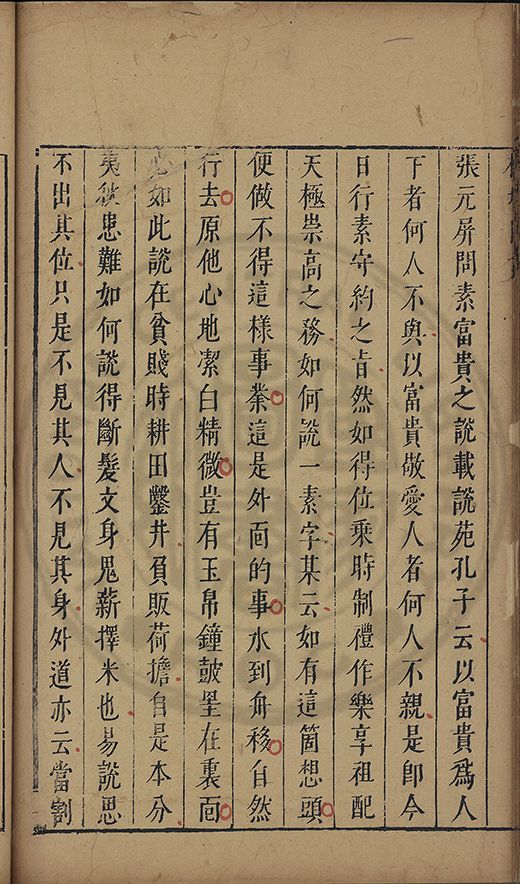 張元屏問素富貴之說載說苑孔子云以富貴爲人
下者何人不與以富貴敬愛人者何人不親是卽今
日行素守約之旨然如得位乘時制禮作樂享祖配
天極崇高之務如何說一素字某云如有這箇想頭
便做不得這樣事業這是外面的事水到舟移自然
行去原他心地潔白精微豈有玉帛鐘鼓堊在裏面
必如此說在貧賤時耕田鑿井負販荷擔自是本分
夷狄患難如何說得斷髮文身鬼薪擇米也易說思
不出其位只是不見其人不見其身外道亦云當割